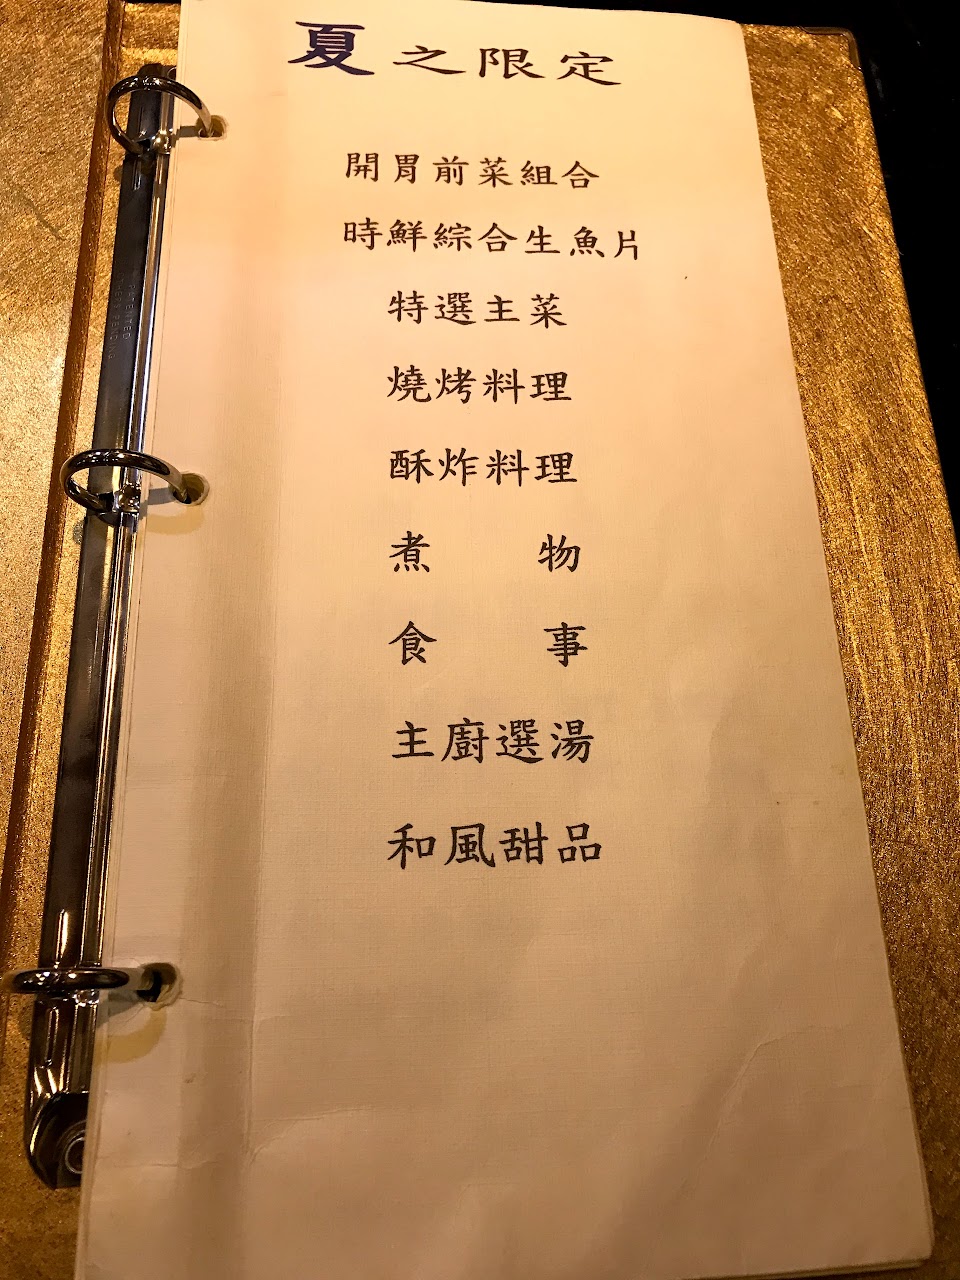 夏之限定
開胃前菜組合
時鮮綜合生魚片
特選主菜
燒烤料理
酥炸料理
煮 物
食 事
主廚選湯
和風甜品